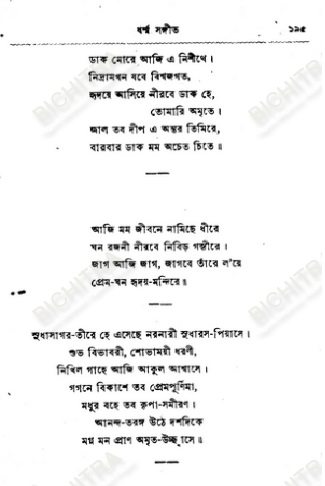 ধর্ম্ম সঙ্গীত ১৯৫
ডাক মোরে আজি এ নিশীথে।
নিদ্রামগন যবে বিশ্বজগত,
হৃদয়ে আসিয়ে নীরবে ডাক হে,
তোমারি অমৃতে।
জ্বাল তব দীপ এ অন্তর তিমিরে,
বারবার ডাক মম অচেত চিতে॥
আজি মম জীবনে নামিছে ধীরে
ঘন রজনী নীরবে নিবিড় গম্ভীরে।
জাগ আজি জাগ, জাগরে তাঁরে ল'য়ে
প্রেম-ঘন হৃদয়-মন্দিরে॥
সুধাসাগর-তীরে হে এসেছে নরনারী সুধারস-পিয়াসে।
শুভ বিভাবরী, শোভাময়ী ধরণী,
নিখিল গাহে আজি আকুল আশ্বাসে।
গগনে বিকাশে তব প্রেমপূর্ণিমা,
মধুর বহে তব কৃপা-সমীরণ।
আনন্দ-তরঙ্গ উঠে দশদিকে
মগ্ন মন প্রাণ অমৃত-উচ্ছ্বাসে॥
BICHITRA